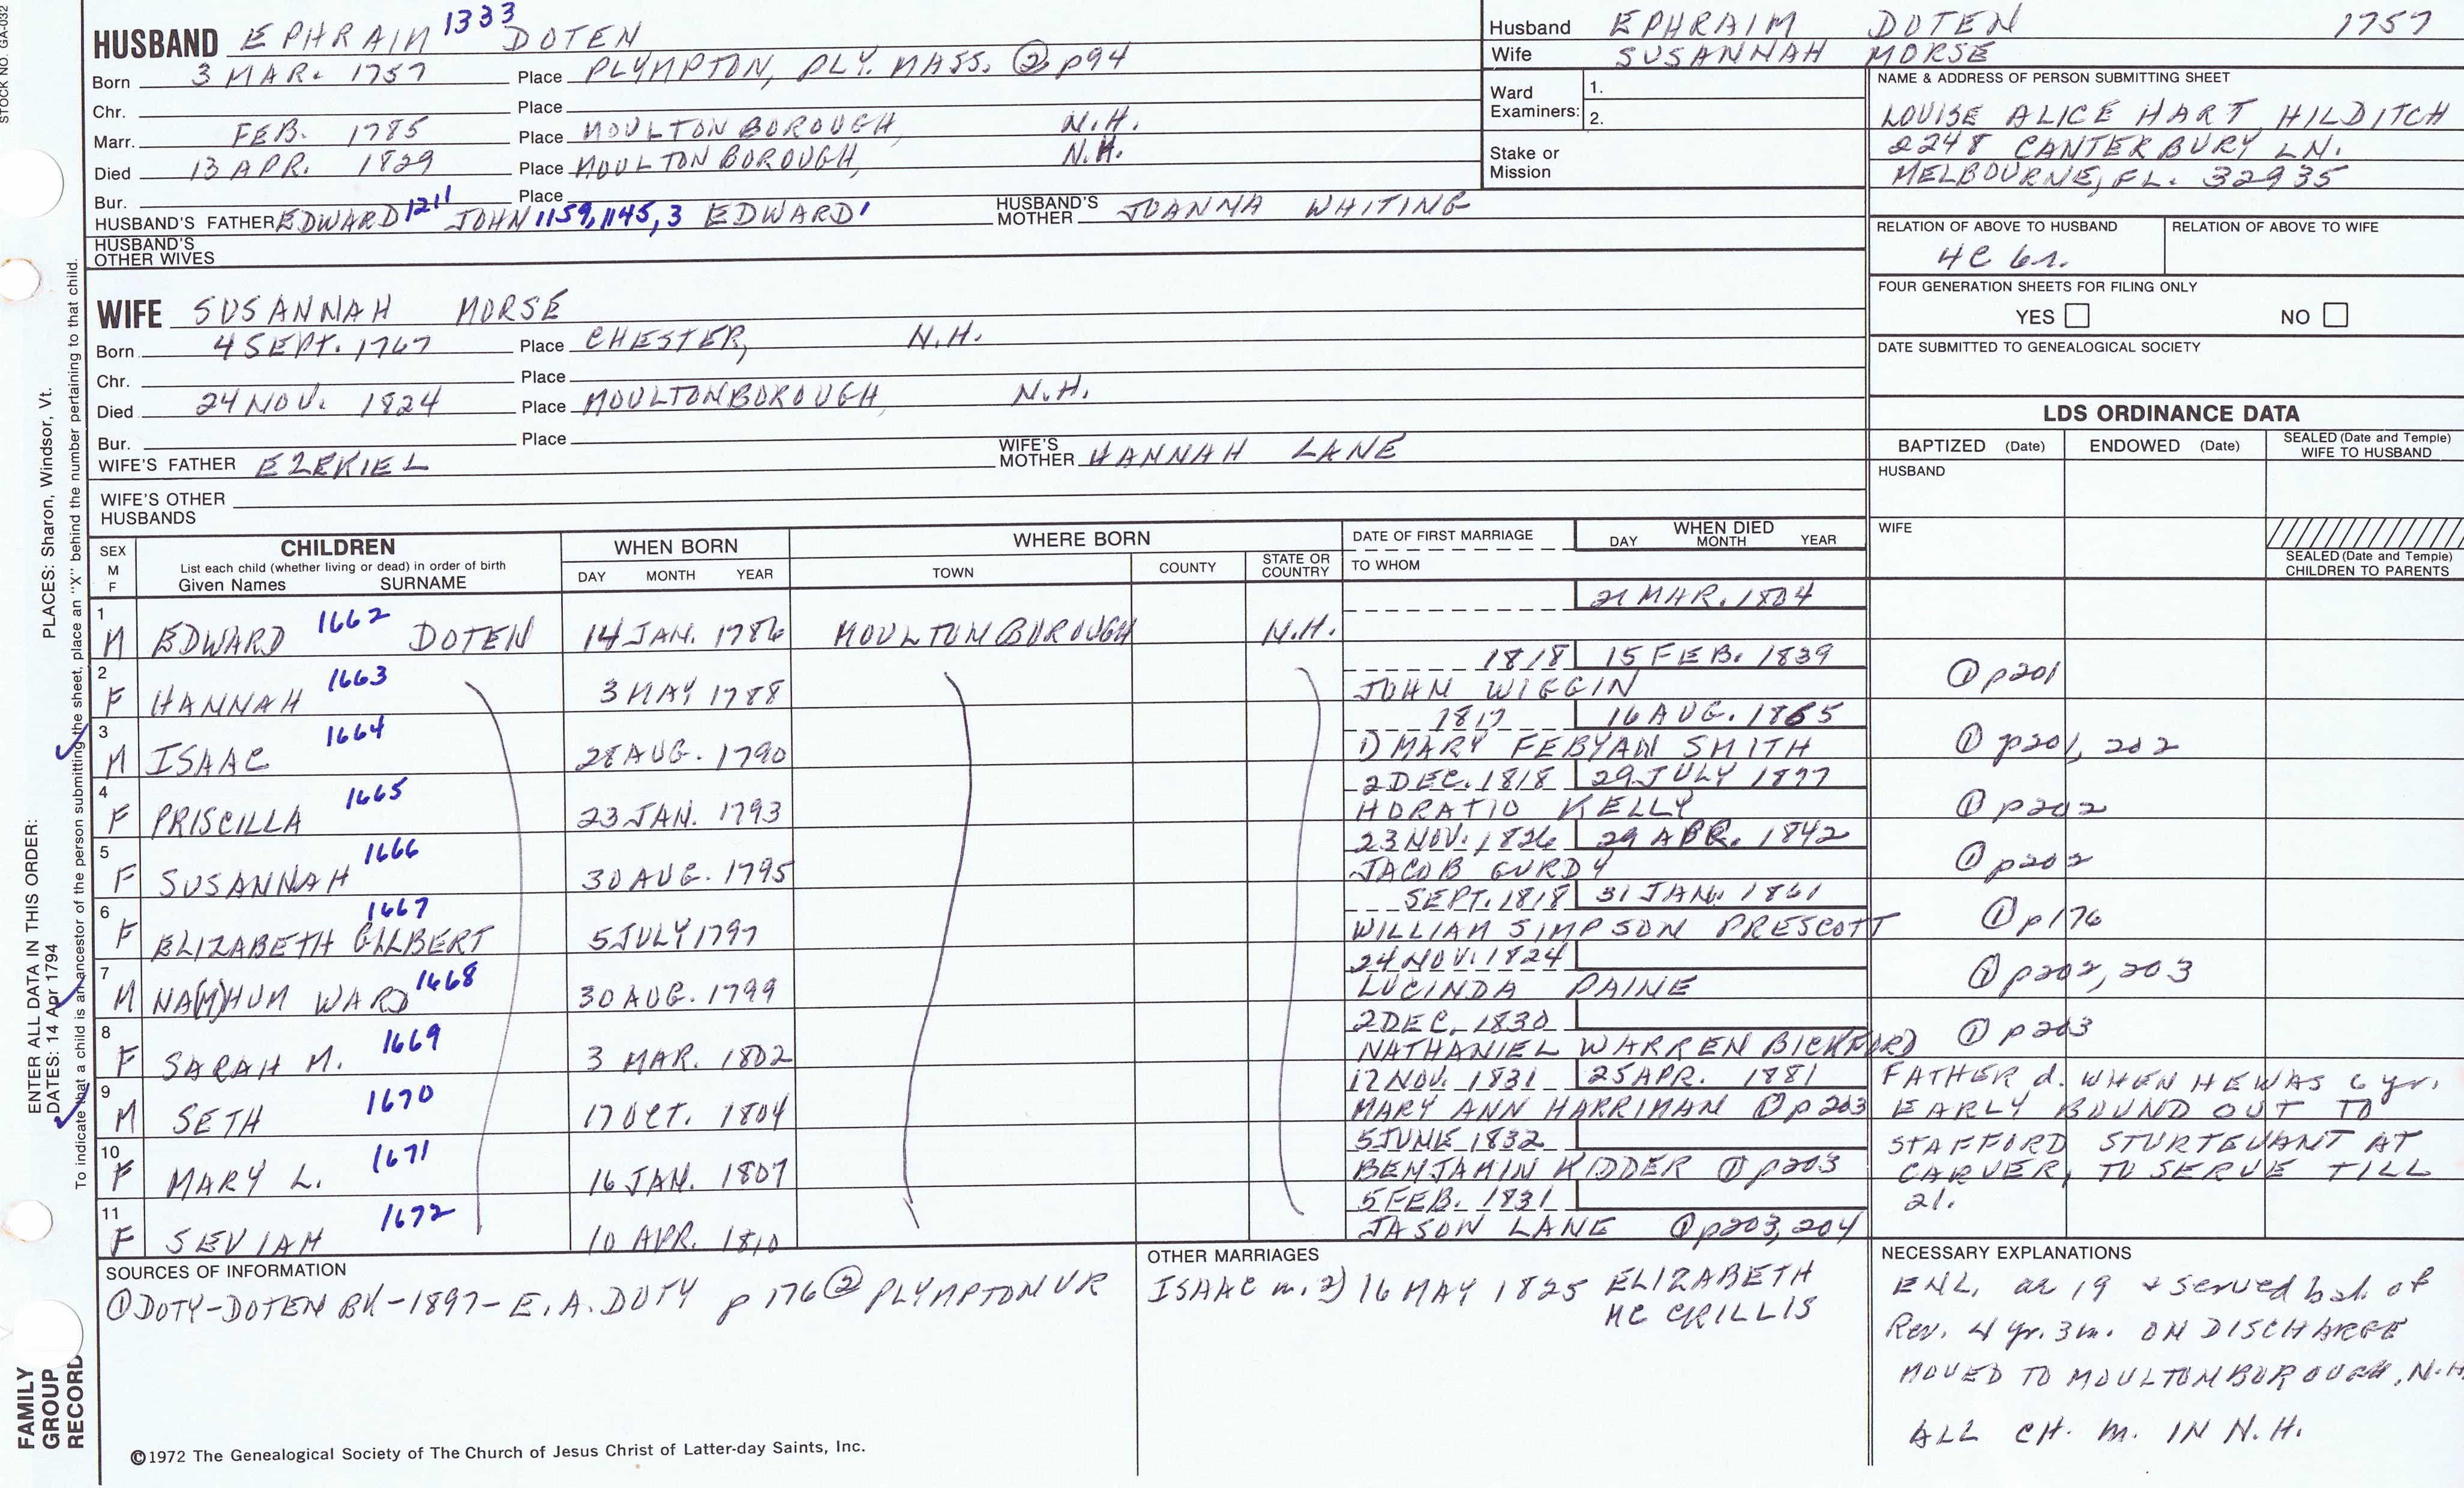 STOCK NO. GA-032
HUSBAND EPHRAIM 1333 DOTEN
Born 3 MAR. 1757 Place PLYMPTON, PLY. MASS. ② p94
Chr. Place
Marr. FEB. 1785 Place MOULTONBOROUGH, N.H.
Died 13 APR. 1829 Place MOULTONBOROUGH, N.H.
Bur. Place
HUSBAND'S FATHER EDWARD 1211 JOHN 1159, 1145, 3 EDWARD 1 HUSBAND'S MOTHER JOANNA WHITING
HUSBAND'S OTHER WIVES
Husband EPHRAIM DOTEN 1757
Wife SUSANNAH MORSE
Ward Examiners: 1.
2.
Stake or Mission
NAME & ADDRESS OF PERSON SUBMITTING SHEET
LOUISE ALICE HART HILDITCH
2248 CANTERBURY LN.
MELBOURNE, FL. 32935
RELATION OF ABOVE TO HUSBAND RELATION OF ABOVE TO WIFE
4C 6r.
FOUR GENERATION SHEETS FOR FILING ONLY
YES NO
DATE SUBMITTED TO GENEALOGICAL SOCIETY
WIFE SUSANNAH MORSE
Born 4 SEPT. 1767 Place CHESTER, N.H.
Chr. Place
Died 24 NOV. 1824 Place MOULTONBOROUGH, N.H.
Bur. Place
WIFE'S FATHER EZEKIEL WIFE'S MOTHER HANNAH LANE
WIFE'S OTHER HUSBANDS
LDS ORDINANCE DATA
BAPTIZED (Date) ENDOWED (Date) SEALED (Date and Temple) WIFE TO HUSBAND
HUSBAND
WIFE
SEALED (Date and Temple) CHILDREN TO PARENTS
SEX M F
CHILDREN
List each child (whether living or dead) in order of birth
Given Names SURNAME
WHEN BORN
DAY MONTH YEAR
WHERE BORN
TOWN COUNTY STATE OR COUNTRY
DATE OF FIRST MARRIAGE
TO WHOM
WHEN DIED
DAY MONTH YEAR
21 MAR. 1804
1 M EDWARD 1662 DOTEN 14 JAN. 1786 MOULTONBOROUGH N.H.
1818 15 FEB. 1839
2 F HANNAH 1663 3 MAY 1788 JOHN WIGGIN ① p201
1817 16 AUG. 1865
3 M ISAAC 1664 28 AUG. 1790 1) MARY FEBYAN SMITH ① p201, 202
2 DEC. 1818 29 JULY 1877
4 F PRISCILLA 1665 23 JAN. 1793 HORATIO KELLY ① p202
23 NOV. 1826 29 APR. 1842
5 F SUSANNAH 1666 30 AUG. 1795 JACOB GURDY ① p202
SEPT. 1818 31 JAN. 1861
6 F ELIZABETH GILBERT 1667 5 JULY 1797 WILLIAM SIMPSON PRESCOTT ① p176
24 NOV. 1824
7 M NA(M)HUM WARD 1668 30 AUG. 1799 LUCINDA PAINE ① p202, 203
2 DEC. 1830
8 F SARAH M. 1669 3 MAR. 1802 NATHANIEL WARREN BICKFORD ① p203
17 NOV. 1831 25 APR. 1881
9 M SETH 1670 17 OCT. 1804 MARY ANN HARRIMAN ① p203
5 JUNE 1832
10 F MARY L. 1671 16 JAN. 1807 BENJAMIN KIDDER ① p203
5 FEB. 1831
11 F SEVIAH 1672 10 APR. 1810 JASON LANE ① p203, 204
FATHER d. WHEN HE WAS 6 yr.
EARLY BOUND OUT TO
STAFFORD STURTEVANT AT
CARVER, TO SERVE TILL
21.
SOURCES OF INFORMATION
① DOTY-DOTEN BK - 1897 - E.A. DOTY p 176 ② PLYMPTON VR
OTHER MARRIAGES
ISAAC m. 2) 16 MAY 1825 ELIZABETH
MC CRILLIS
NECESSARY EXPLANATIONS
ENL. ae 19 & served bal. of
Rev. 4 yr. 3m. ON DISCHARGE
MOVED TO MOULTONBOROUGH, N.H.
ALL CH. m. IN N.H.
©1972 The Genealogical Society of The Church of Jesus Christ of Latter-day Saints, Inc.
FAMILY
GROUP
RECORD
ENTER ALL DATA IN THIS ORDER:
DATES: 14 Apr 1794
PLACES: Sharon, Windsor, Vt.
To indicate that a child is an ancestor of the person submitting the sheet, place an "X" behind the number pertaining to that child.